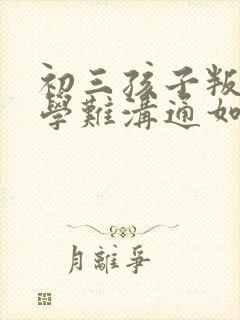 初三孩子叛
學難溝通如
月離爭